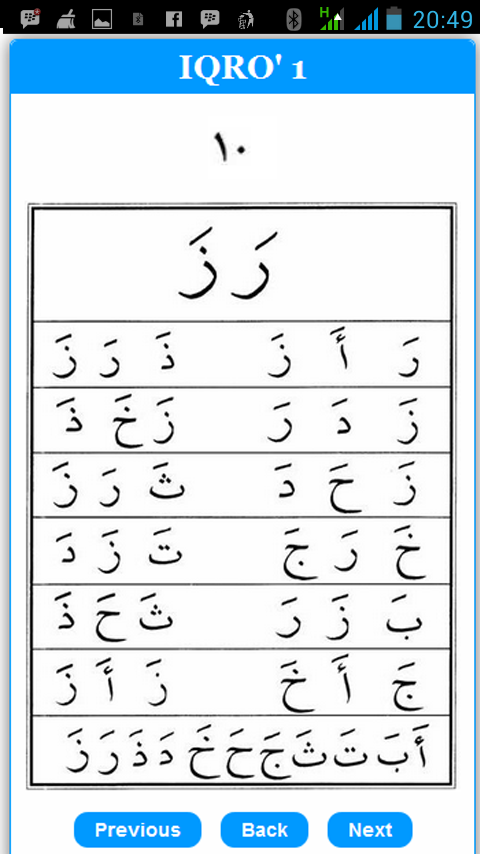 20:49
IQRO' 1
١٠
رَ زَ
رَ أَ زَ ذَ رَ زَ
زَ دَ رَ زَ خَ ذَ
زَ حَ دَ ثَ رَ زَ
خَ رَ جَ تَ زَ دَ
بَ زَ رَ ثَ حَ ذَ
جَ أَ خَ زَ أَ زَ
أَ بَ تَ ثَ جَ حَ خَ دَ ذَ رَ زَ
Previous Back Next